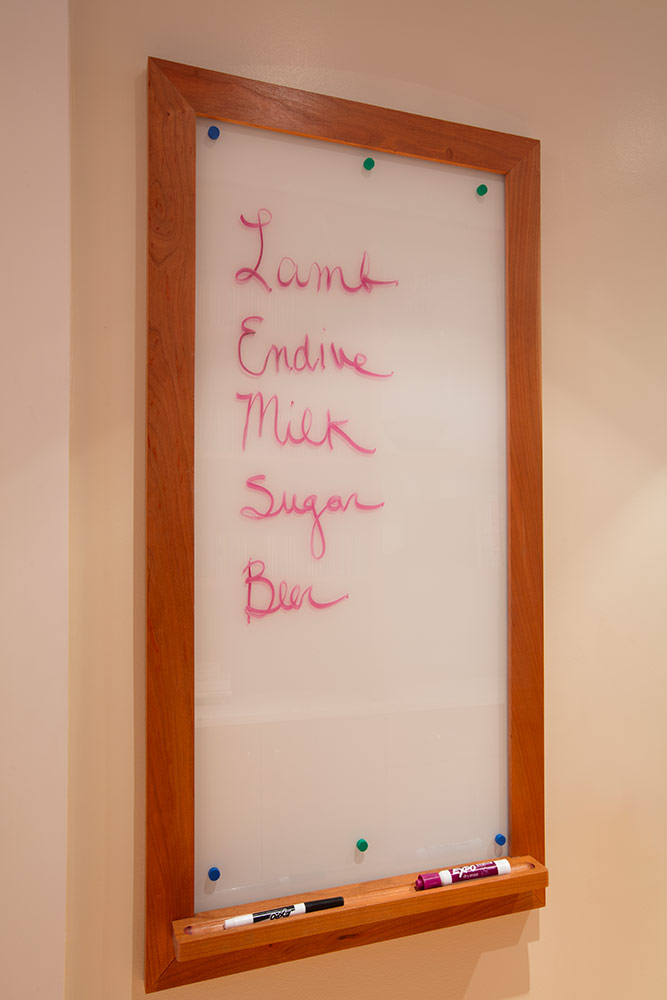 Lamb
Endive
Milk
Sugar
Beer
EXPO